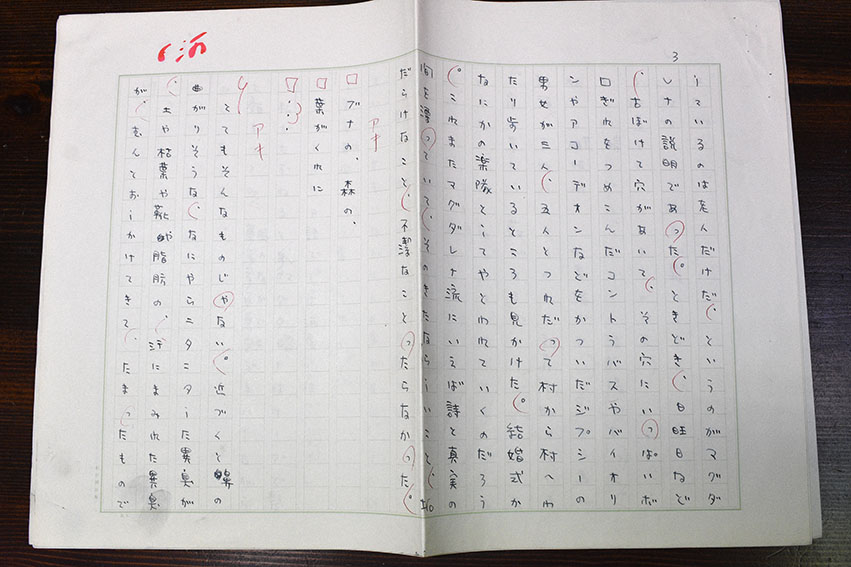 3
しているのは老人だけだ、というのがマグダ
レナの説明であった。ときどき、日旺日など
、古ぼけて穴があいて、その穴にいっぱいボ
ロぎれをつめこんだコントラバスやバイオリ
ンやアコーデオンなどをかついだジプシーの
男女が三人、五人とつれだって村から村へわ
たり歩いているところも見かけた。結婚式か
なにかの楽隊としてやとわれていくのだろう
。これまたマグダレナ流にいえば詩と真実の
間を漂っていて、そのきたならしいこと、垢
だらけなこと、不潔なことったらなかった。
アキ
ブナの、森の、
葉がくれに
アキ
とてもそんなものじゃない。近づくと鼻の
曲がりそうな、なにやらニタニタした異臭が
、土や枯葉や薪や脂肪の、汗にまみれた異臭
が、むんとおしかけてきて、たまったもので